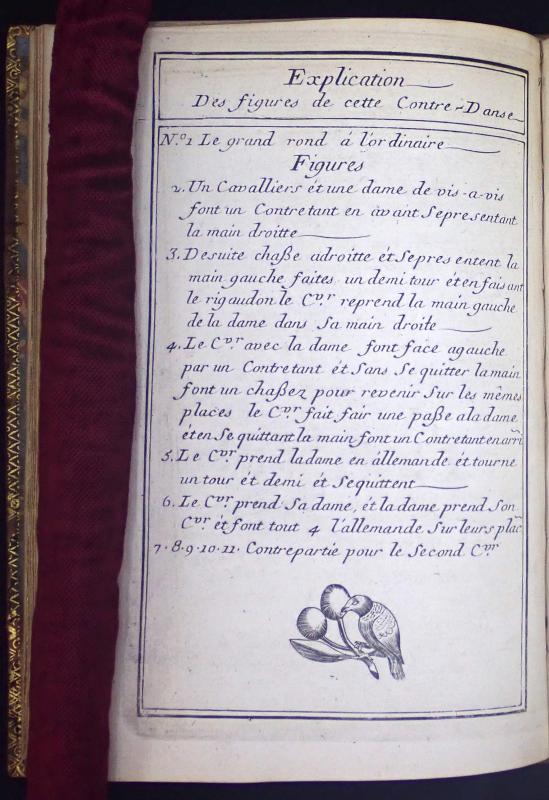 Explication
Des figures de cette Contre-Danse
N.º1 Le grand rond á l'ordinaire
Figures
2. Un Cavalliers ét une dame de vis-a-vis
font un Contretant en avant Sepresentant
la main droitte
3. Desuite chaße adroitte ét Sepres entent la
main gauche faites un demi tour ét en faisant
le rigaudon le C.vr reprend la main gauche
de la dame dans Sa main droite
4. Le C.vr avec la dame font face agauche
par un Contretant ét Sans Se quitter la main
font un chaßez pour revenir Sur les mêmes
places le C.vr fait fair une paße ala dame
ét en Se quittant la main font un Contretant en arri
5. Le C.vr prend la dame en állemande ét tourne
un tour ét demi ét Sequittent
6. Le C.vr prend Sa dame, ét la dame prend Son
C.vr ét font tout 4 l'allemande Sur leurs plac
7. 8. 9. 10. 11. Contrepartie pour le Second C.vr